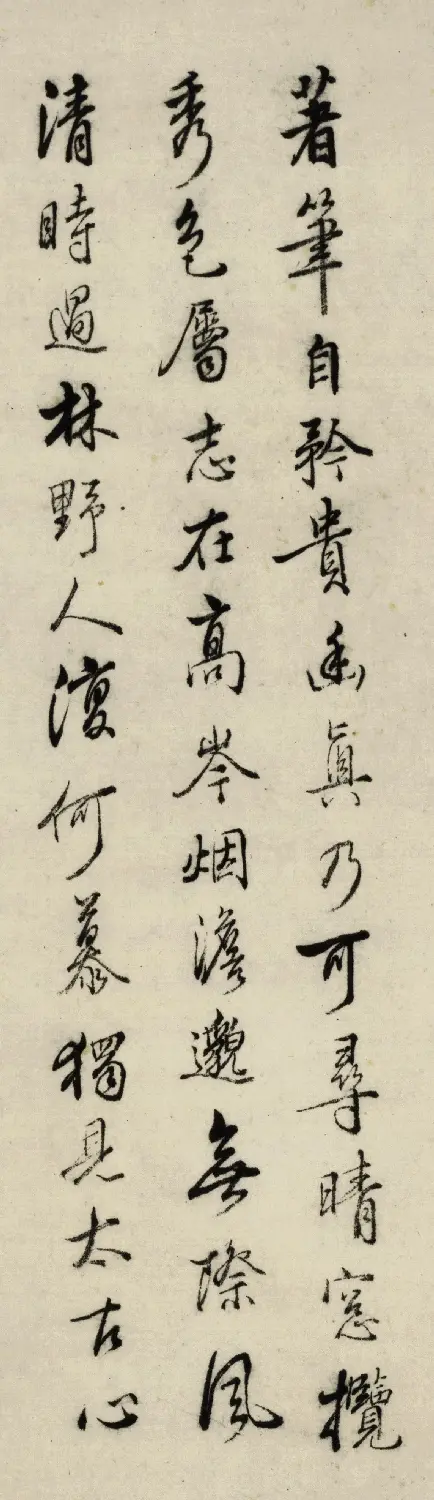 著筆自矜貴幽真乃可尋晴窗攬
秀色屬志在高岑烟澹邈無際風
清時過林野人復何慕獨見太古心